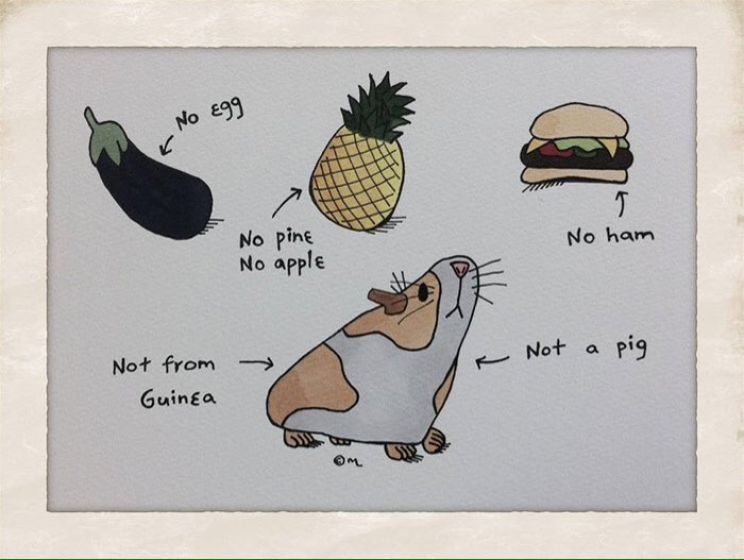 No egg
No pine
No apple
No ham
Not from
Guinea
Not a pig
©m